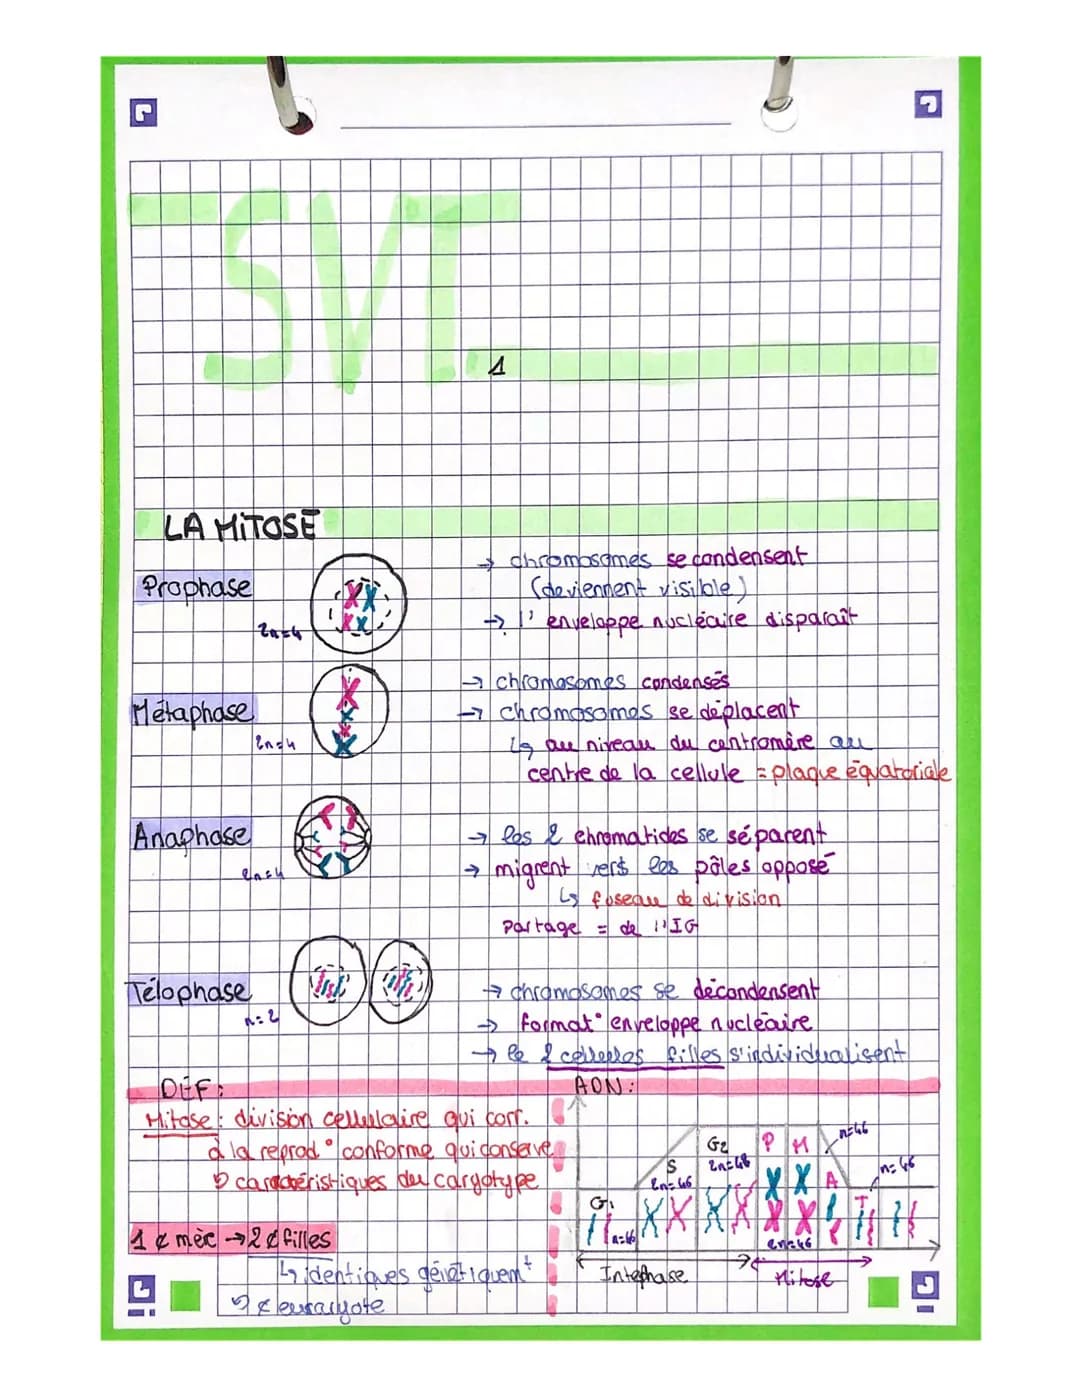 SVT
1
LA MITOSE
Prophase
2n=4
→ chromosomes se condensent
(deviennent visible)
→ l'enveloppe nucléaire disparaît
Métaphase
2n=4
→ chromosomes condensés
→ chromosomes se déplacent
↳ au niveau du centromère au
centre de la cellule = plaque équatoriale
Anaphase
2n=4
→ les 2 chromatides se séparent
→ migrent vers les pôles opposé
↳ fuseau de division
Partage = de l'IG
Télophase
n=2
→ chromosomes se décondensent
→ format° enveloppe nucléaire
→ le 2 cellules filles s'individualisent
DEF:
Mitose: division cellulaire qui corr.
à la reprod° conforme qui conserve
caractéristiques du caryotype
1 ¢ mèr → 2 ¢ filles
↳ identiques génétiquem^t
¢ eucaryote
ADN:
G1
n=46
S
2n=46
G2
2n=46
P M
2n=46
A
n=46
T
n=46
Intephase
Mitose